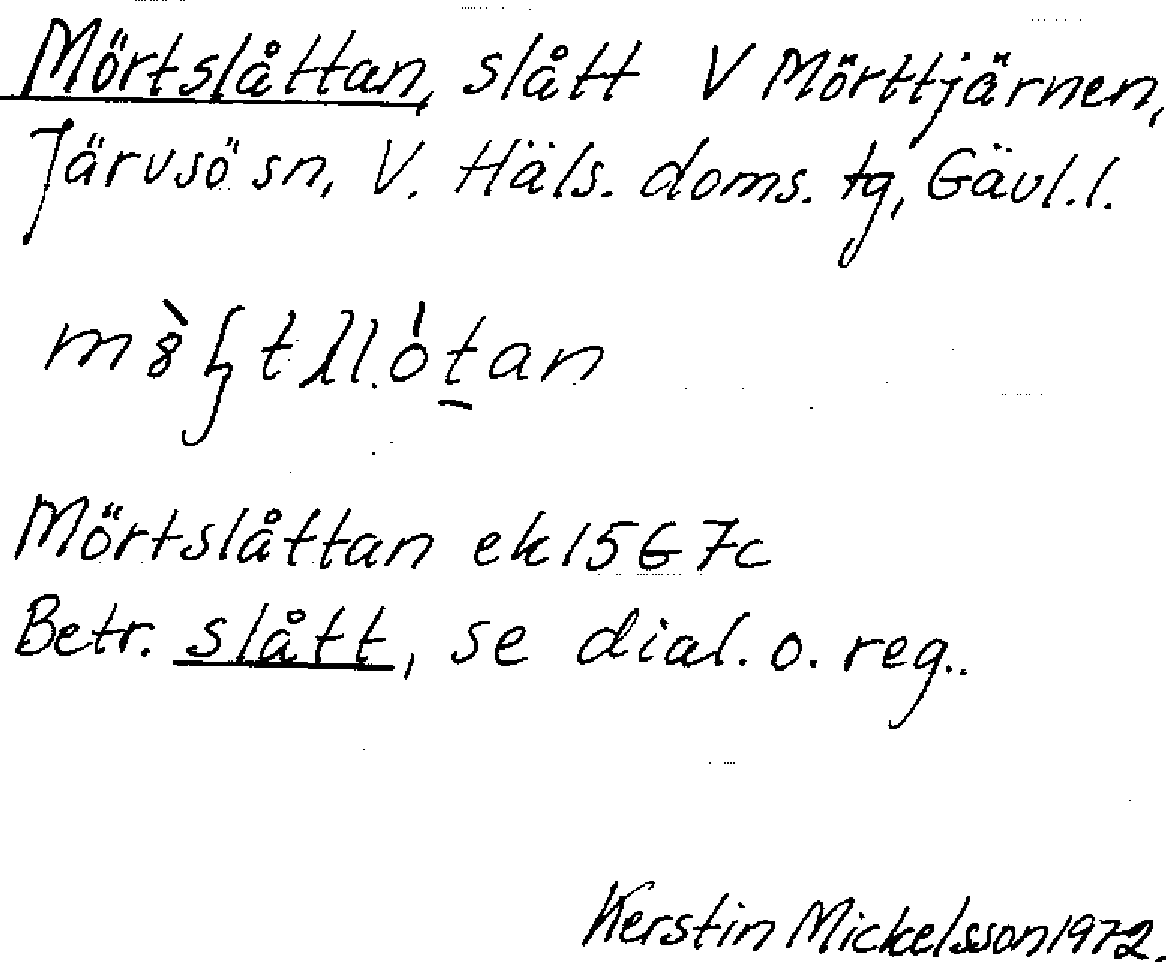 Mörtslåttan, slått V Mörttjärnen,
Järvsö sn, V. Häls. doms. tg, Gävl.l.
Mörtslåttan ek 15G 7c
Betr. slått, se dial. o. reg..
Kerstin Mickelsson 1972.